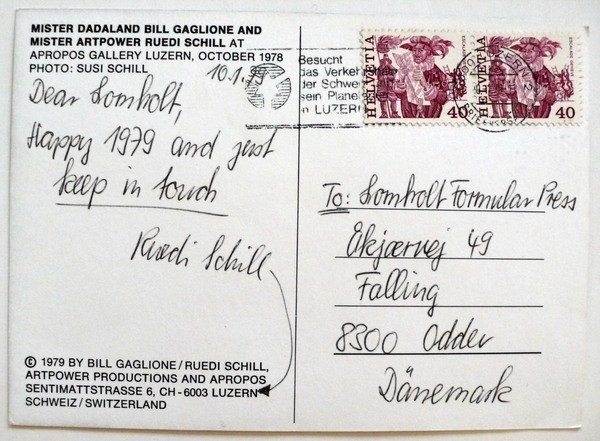 MISTER DADALAND BILL GAGLIONE AND
MISTER ARTPOWER RUEDI SCHILL AT
APROPOS GALLERY LUZERN, OCTOBER 1978
PHOTO: SUSI SCHILL
10.1.79
Dear Lomholt,
Happy 1979 and just
keep in touch
Ruedi Schill
© 1979 BY BILL GAGLIONE/RUEDI SCHILL,
ARTPOWER PRODUCTIONS AND APROPOS
SENTIMATTSTRASSE 6, CH-6003 LUZERN
SCHWEIZ/SWITZERLAND
Besucht
das Verkehrshaus
der Schweiz
sein Planetarium
in LUZERN
HELVETIA
40
HELVETIA
40
LUZERN 2
To: Lomholt Formular Press
Ekjærvej 49
Falling
8300 Odder
Dänemark